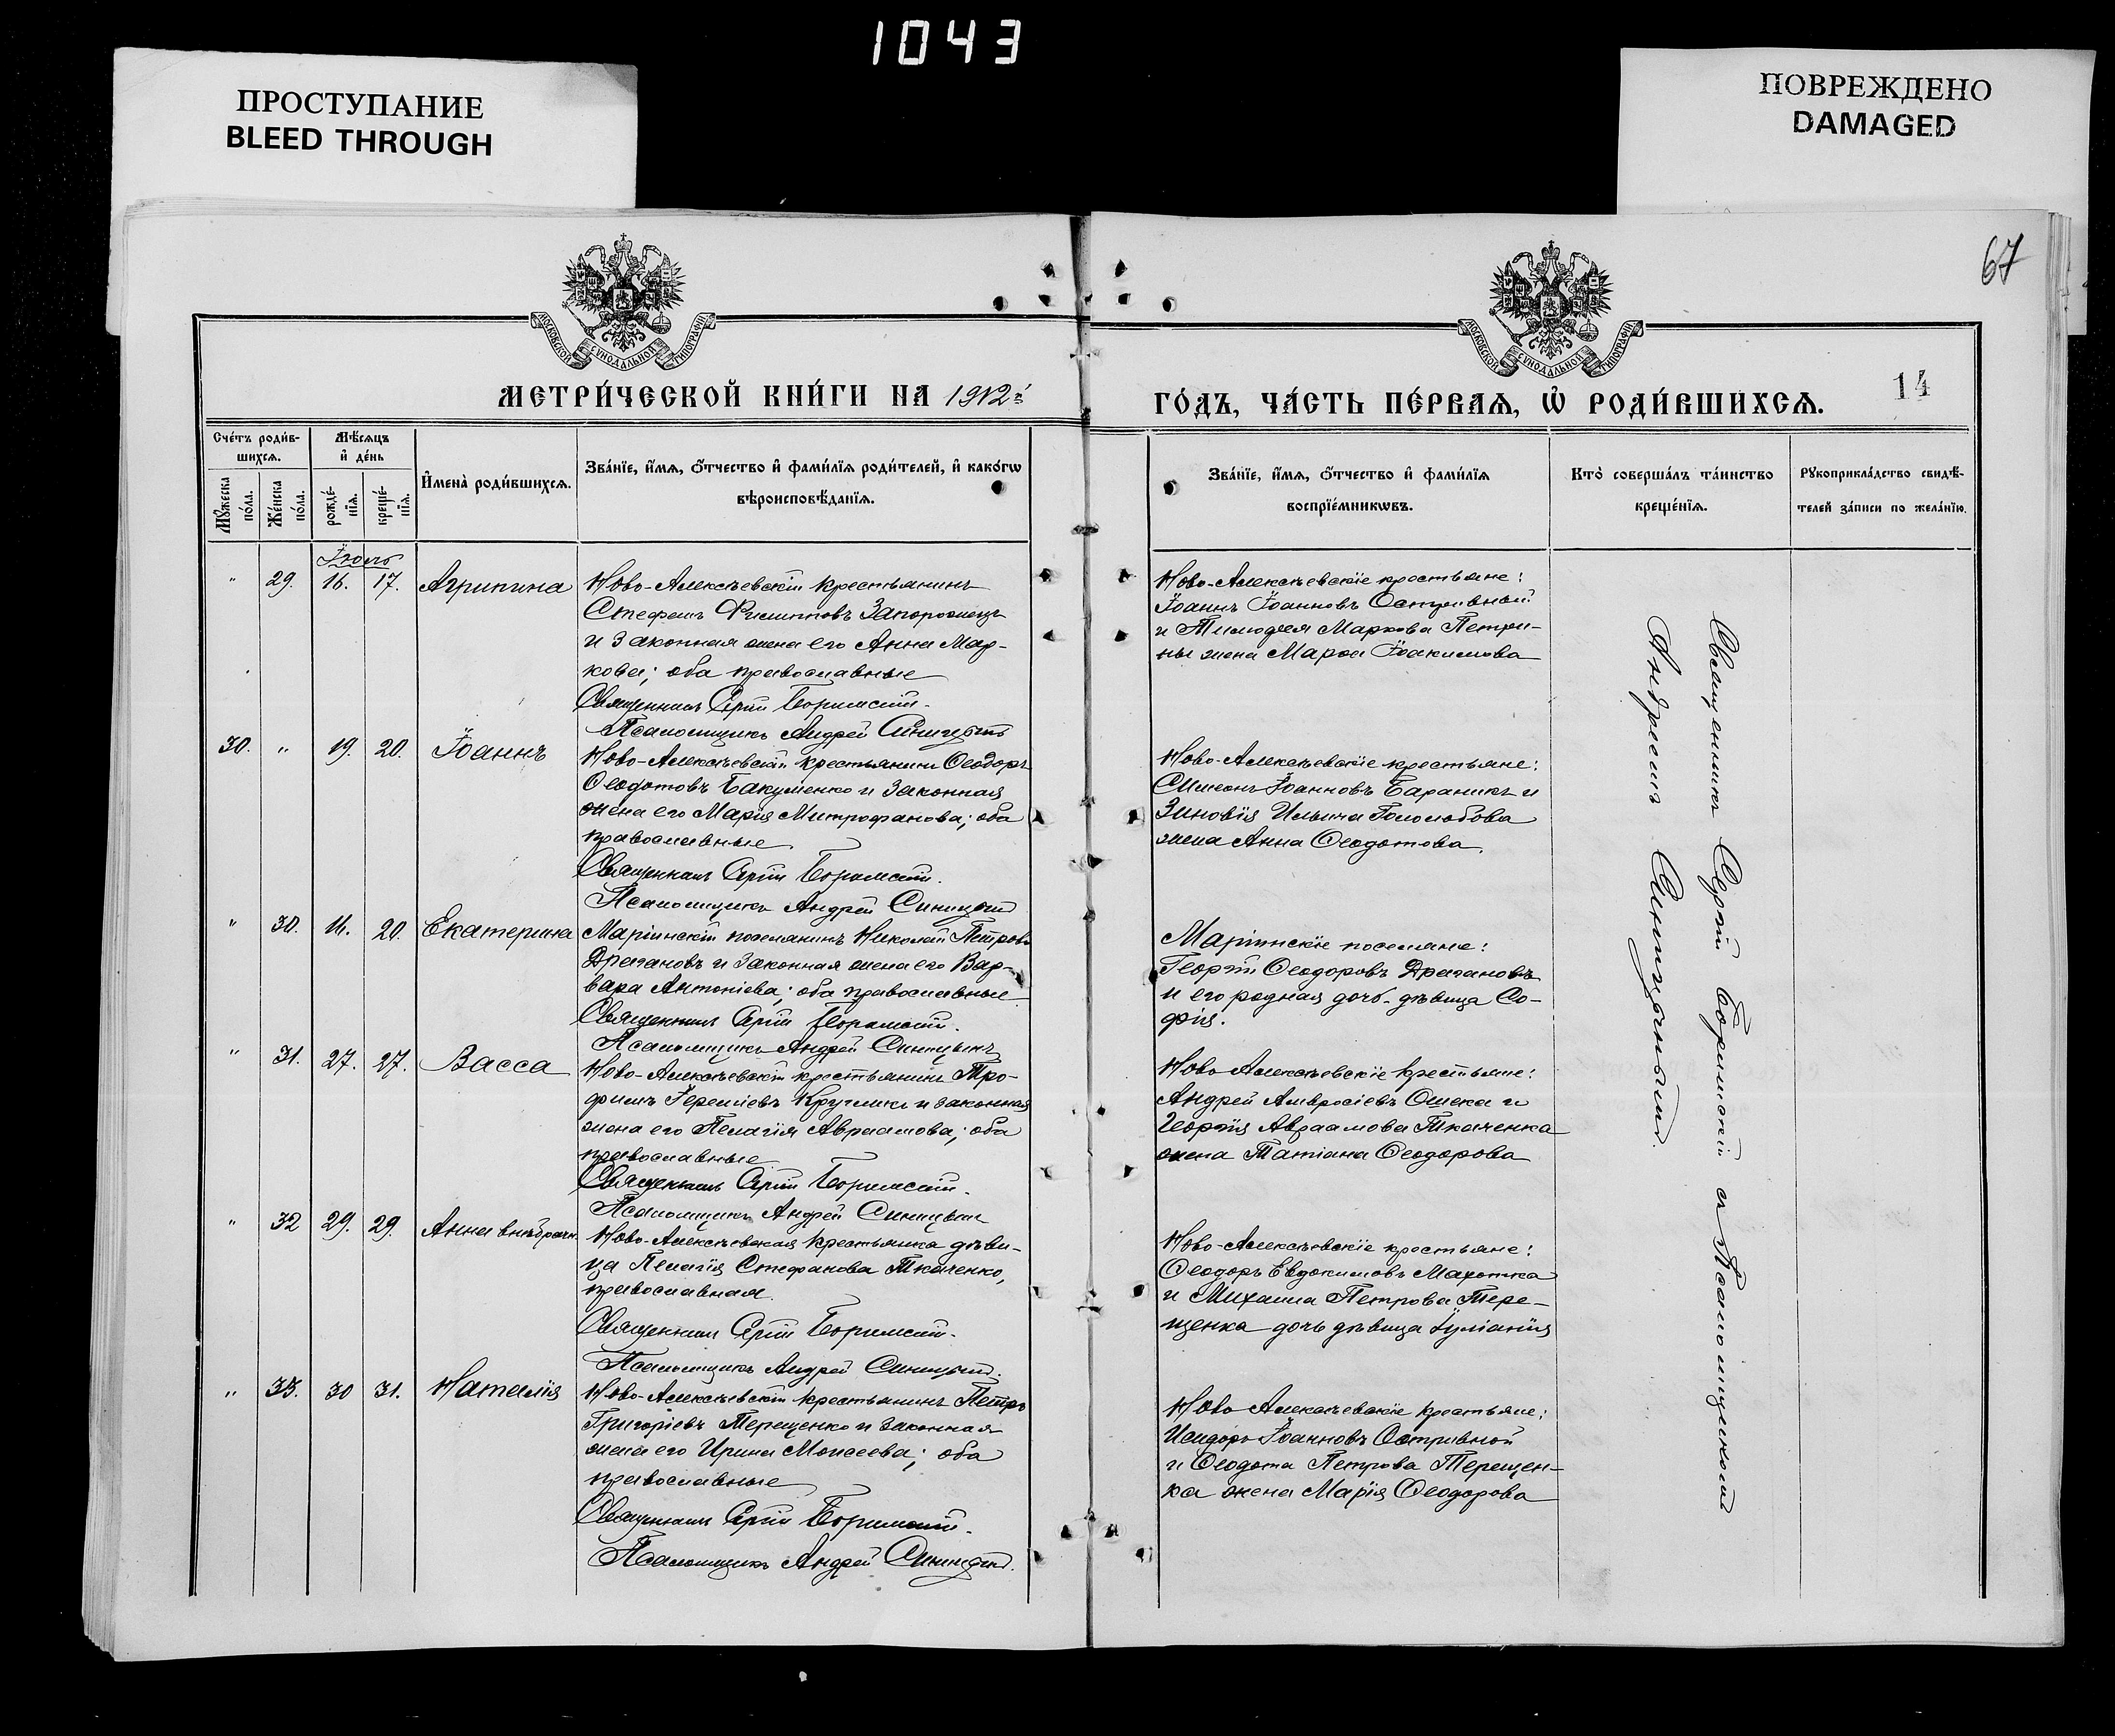 1043
ПРОСТУПАНИЕ
BLEED THROUGH
ПОВРЕЖДЕНО
DAMAGED
67
МОСКОВСКОЙ СУНОДАЛЬНОЙ ТИПОГРАФІИ
МОСКОВСКОЙ СУНОДАЛЬНОЙ ТИПОГРАФІИ
МЕТРИ́ЧЕСКОЙ КНИ́ГИ НА 1912 г.
ГО́ДЪ, ЧА́СТЬ ПЕ́РВАѦ, Ѡ РОДИ́ВШИХСѦ.
14
Сче́тъ роди́в-
шихсѧ.
Мꙋ́жеска по́ла.
Же́нска по́ла.
Мѣ́сѧцъ
и де́нь
рожде́-
нїѧ.
креще́-
нїѧ.
Имена̀ роди́вшихсѧ.
Зва́нїе, и́мѧ, о́тчество и фами́лїѧ роди́телей, и како́гѡ
вѣроисповѣ́данїѧ.
Зва́нїе, и́мѧ, о́тчество и фами́лїѧ
воспрїе́мникѡвъ.
Кто̀ соверша́лъ та́инство
креще́нїѧ.
Рꙋкоприкла́дство свидѣ́-
телей за́писи по жела́нїю.
Іюль
" 29. 16. 17. Агрипина
Ново-Алексѣевскій крестьянинъ
Стефанъ Филипповъ Запорожецъ
и законная жена его Анна Мар-
кова; оба православные
Священникъ Сергій Боримскій.
Псаломщикъ Андрей
Ново-Алексѣевскіе крестьяне:
Іоаннъ Іоанновъ Островный
и Тимофея Маркова Петри-
ны жена Марфа Іоакимова
30. " 19. 20. Іоаннъ
Ново-Алексѣевскій крестьянинъ Ѳеодоръ
Ѳеодотовъ Бакуменко и законная
жена его Марія Митрофанова; оба
православные
Священникъ Сергій Боримскій.
Псаломщикъ Андрей
Ново-Алексѣевскіе крестьяне:
Симеонъ Іоанновъ Бараникъ и
Зиновія Ильина Гололобова
жена Анна Ѳеодотова.
" 30. 16. 20. Екатерина
Маріинскій поселянинъ Николай Петровъ
Драгановъ и законная жена его Вар-
вара Антоніева; оба православные
Священникъ Сергій Боримскій.
Псаломщикъ Андрей
Маріинскіе поселяне:
Георгій Ѳеодоровъ Драгановъ
и его родная дочь-дѣвица Со-
фія.
" 31. 27. 27. Васса
Ново-Алексѣевскій крестьянинъ Тро-
фимъ Іереміевъ Кругликъ и законная
жена его Пелагія Авраамова; оба
православные
Священникъ Сергій Боримскій.
Псаломщикъ Андрей
Ново-Алексѣевскіе крестьяне:
Андрей Амвросіевъ Ошека и
Георгія Авраамова Ткаченка
жена Татіана Ѳеодорова
" 32 29. 29. Анна внѣбрачн.
Ново-Алексѣевская крестьянка дѣви-
ца Пелагія Стефанова Ткаченко,
православная.
Священникъ Сергій Боримскій.
Псаломщикъ Андрей
Ново-Алексѣевскіе крестьяне:
Ѳеодоръ Евдокимовъ Махотка
и Михаила Петрова Тере-
щенка дочь дѣвица Іуліанія
" 33. 30 31. Наталія
Ново-Алексѣевскій крестьянинъ Петръ
Григоріевъ Терещенко и законная
жена его Ирина Моисеева; оба
православные
Священникъ Сергій Боримскій.
Псаломщикъ Андрей
Ново-Алексѣевскіе крестьяне:
Исидоръ Іоанновъ Островной
и Ѳеодота Петрова Терещен-
ка жена Марія Ѳеодорова
Священникъ Сергій Боримскій съ Псаломщикомъ
Андреемъ